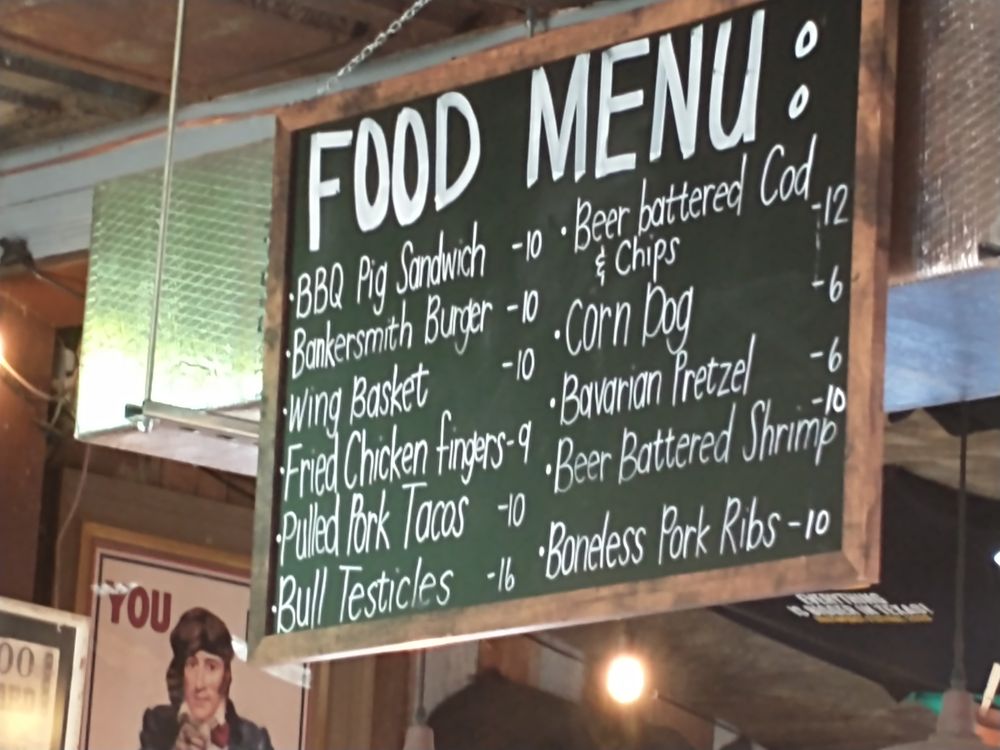 FOOD MENU:
·BBQ Pig Sandwich -10
·Bankersmith Burger -10
·Wing Basket -10
·Fried Chicken fingers-9
·Pulled Pork Tacos -10
·Bull Testicles -16
·Beer battered Cod -12
& Chips
·Corn Dog -6
·Bavarian Pretzel -6
·Beer Battered Shrimp -10
·Boneless Pork Ribs -10
YOU
00